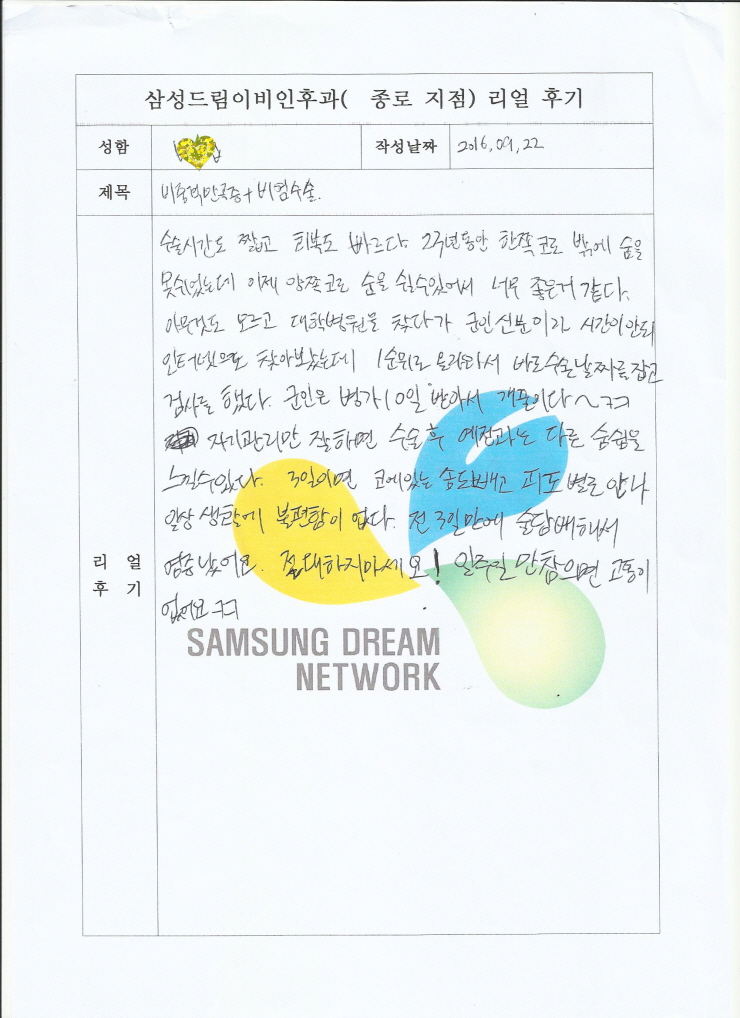 삼성드림이비인후과( 종로 지점) 리얼 후기
성함
작성날짜 2016.09.22
제목 비중격만곡증+비염수술.
수술시간도 짧고 회복도 빠르다 2주년동안 한쪽코로 밖에 숨을
못쉬었는데 이제 양쪽코로 숨을 쉴수있어서 너무 좋은거 같다.
아무것도 모르고 대학병원을 찾다가 군인신분이라 시간이안되
인터넷으로 찾아보았는데 1순위로 올라와서 바로수술날짜를잡고
검사를 했다. 군인은 병가10일 받아서 개꿀이다~ㅋㅋ
자기관리만 잘하면 수술후 예전과는 다른 숨쉼을
느낄수있다. 3일이면 코에있는 솜도빼고 피도 별로 안나
일상 생활에 불편함이 없다. 전 3일만에 술담배해서
염증났어요. 절대하지마세요! 일주일만참으면 고통이
없어요 ㅋㅋ
리얼
후기
SAMSUNG DREAM
NETWORK